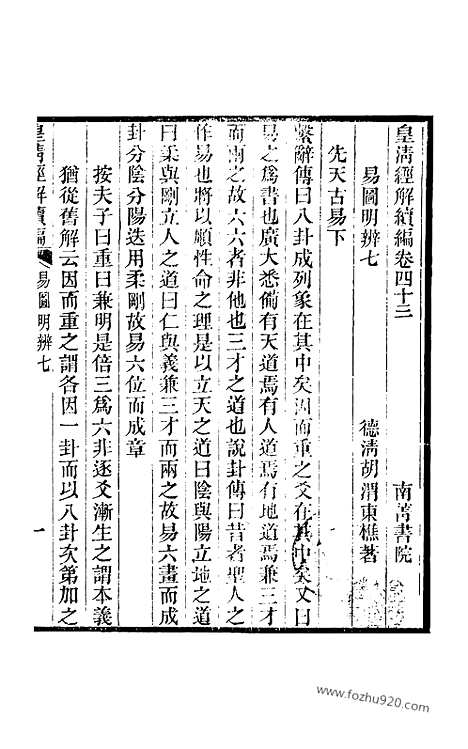 皇清經解續編卷四十三
南菁書院
易圖明辨七
德清胡渭東樵著
先天古易下
繫辭傳曰八卦成列象在其中矣因而重之爻在其中矣又曰
易之爲書也廣大悉備有天道焉有人道焉有地道焉兼三才
而兩之故六六者非他也三才之道也說卦傳曰昔者聖人之
作易也將以順性命之理是以立天之道曰陰與陽立地之道
曰柔與剛立人之道曰仁與義兼三才而兩之故易六畫而成
卦分陰分陽迭用柔剛故易六位而成章
按夫子曰重曰兼明是倍三爲六非逐爻漸生之謂本義
猶從舊解云因而重之謂各因一卦而以八卦次第加之
皇清經解續編
易圖明辨七
一
www.fozhu920.com